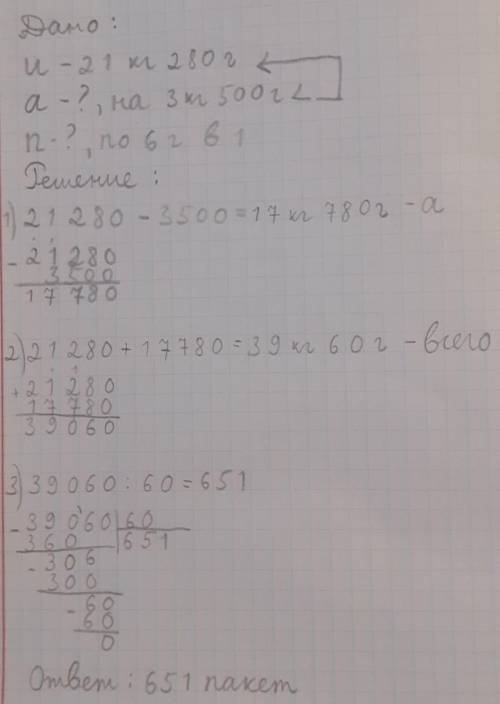 Дано:
и - 21 кг 280г
а - ?, на 3 кг 500г <
п - ?, по 6 г в 1
Решение:
1) 21 280 - 3500 = 17 кг 780г - а
- 21280
3500
17 780
2) 21 280 + 17780 = 39 кг 60 г - всего
+ 21 280
17 780
39060
3) 39060 : 60 = 651
- 39060 60
360 651
- 306
300
- 60
60
0
Ответ: 651 пакет